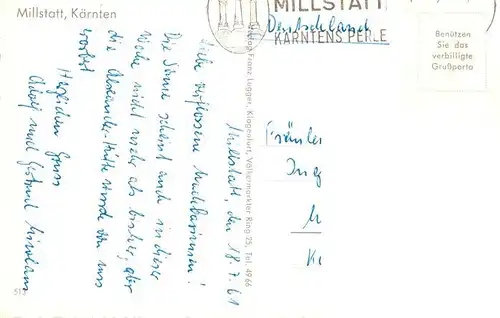 Millstatt, Kärnten
MILLSTATT
KÄRNTENS PERLE
Deutschland
Benützen
Sie das
verbilligte
Grußporto
Verlag Franz Lugger, Klagenfurt, Völkermarkter Ring 25, Tel. 49 66
Millstatt, den 18.7.61
Liebe Nachbarinnen!
Die Sonne scheint auch in dieser
Woche nicht mehr als bisher, aber
die Alexander-Hütte wurde von uns
erobert
Herzlichen Gruss
Adolf und Gertrud
Fräulein
Ing